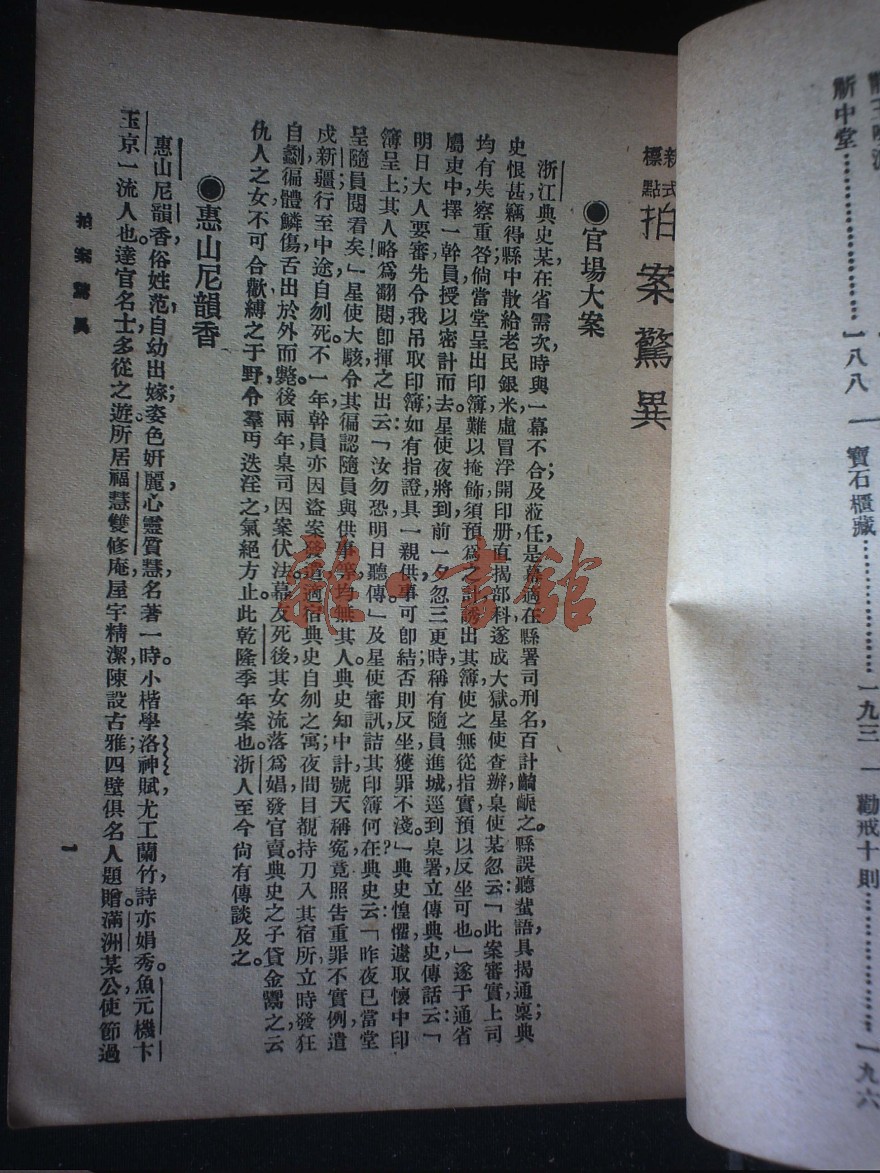 斷中堂⋯⋯⋯⋯⋯⋯一八八
寶石櫃藏⋯⋯⋯⋯⋯⋯一九三
勸戒十則⋯⋯⋯⋯⋯⋯一九六
新式
標點
拍案驚異
●官場大案
浙江典史某在省需次時，與一幕不合；及蒞任，是幕適在縣署司刑名，百計齮齕之。縣誤聽蜚語，具揭通稟；典
史恨甚，竊得縣中散給老民銀米虛冒浮開印册，直揭部科，遂成大獄。星使查辦，臬使某忽云：「此案審實，上司
均有失察重咎，倘當堂呈出印簿，難以掩飾，須預爲之計，誘出其簿，使之無從指實，預以反坐可也。」遂于通省
屬吏中擇一幹員，授以密計而去。星使夜將到前一夕，忽三更時，稱有隨員進城，逕到臬署，立傳典史，傳話云：「
明日大人要審，先令我吊取印簿，如有指證，具一親供，事可卽結；否則反坐，獲罪不淺。」典史惶懼，遽取懷中印
簿呈上，其人略爲翻閱，卽揮之出云：「汝勿恐，明日聽傳！」及星使審訊，詰其印簿何在？典史云：「昨夜已當堂
呈隨員閱看矣。」星使大駭，令其徧認隨員與供事等，均無其人，典史知中計，號天稱寃，竟照告重罪不實例，遣
戍新疆，行至中途自刎死。不一年，幹員亦因盜案發遣，適宿典史自刎之寓，夜間目覩持刀入其宿所，立時發狂，
自劙徧體鱗傷，舌出於外而斃。後兩年，臬司因案伏法。幕友死後，其女流落爲娼，發官賣，典史之子貸金鬻之，云
仇人之女，不可合歡，縛之于野，令羣丐迭淫之，氣絕方止。此乾隆季年案也。浙人至今尙有傳談及之。
●惠山尼韻香
惠山尼韻香，俗姓范，自幼出嫁；姿色妍麗，心靈質慧，名著一時。小楷學洛神賦，尤工蘭竹，詩亦娟秀。魚元機卞
玉京一流人也。達官名士，多從之遊。所居福慧雙修庵，屋宇精潔，陳設古雅；四壁俱名人題贈。滿洲某公，使節過
拍案驚異
一
龍·書館